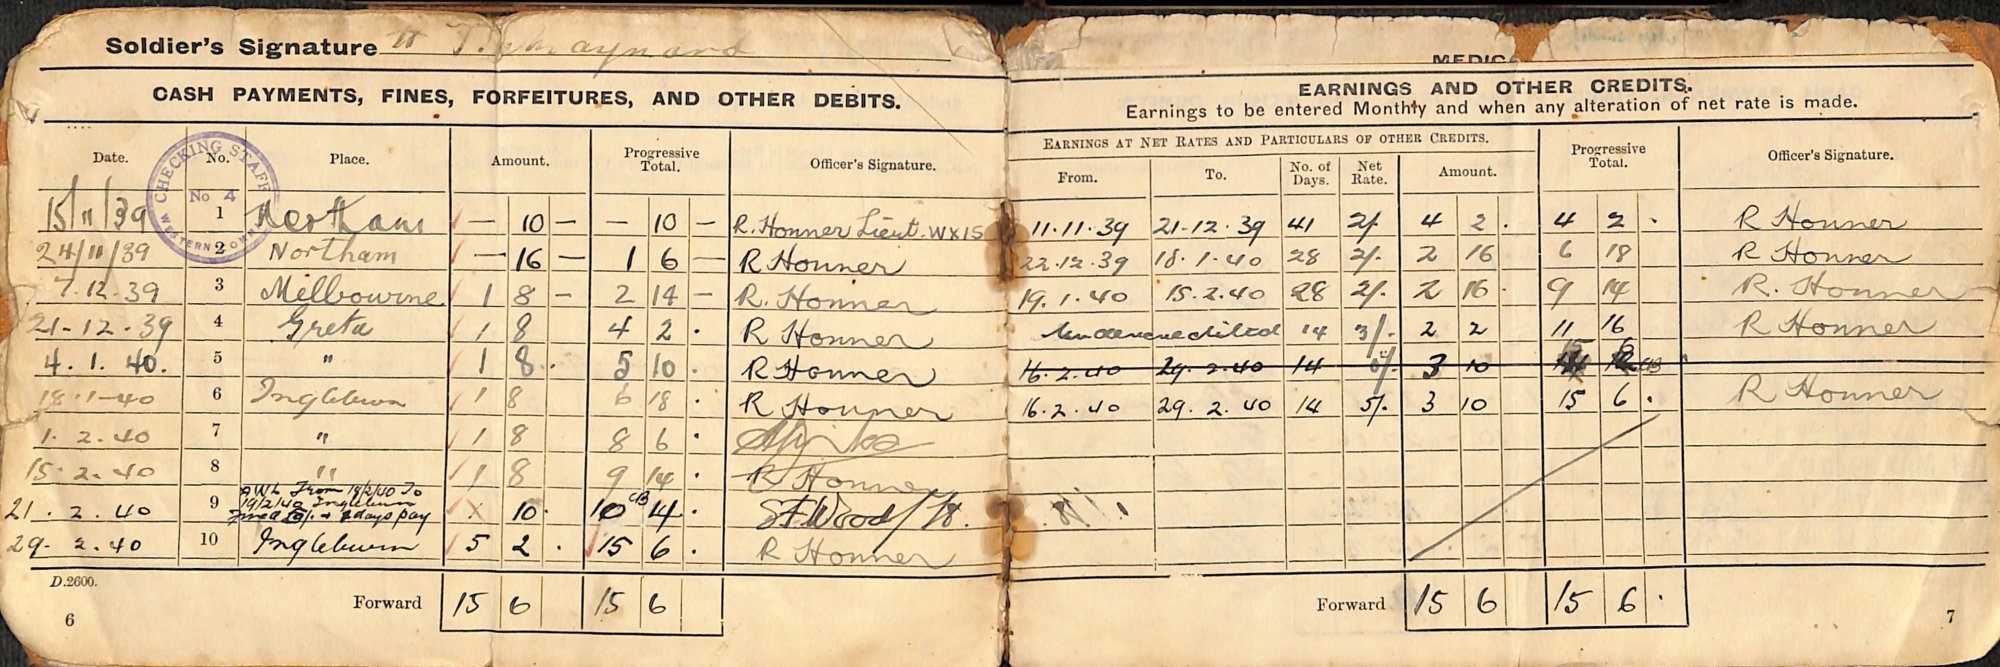 Soldier's Signature
CASH PAYMENTS, FINES, FORFEITURES, AND OTHER DEBITS.
Date. No. Place. Amount. Progressive Total. Officer's Signature.
CHECKING STAFF No 4 WESTERN COMM
15/11/39 1 Northam — 10 — — 10 — R. Honner Lieut. WX15
24/11/39 2 Northam — 16 — 1 6 — R Honner
7.12.39 3 Melbourne 1 8 — 2 14 — R. Honner
21-12.39 4 Greta 1 8 4 2 . R Honner
4.1.40. 5 " 1 8 . 5 10 . R Honner
18.1-40 6 Ingleburn 1 8 6 18 . R Honner
1.2.40 7 " 1 8 8 6 .
15.2.40 8 " 1 8 9 14 . R Honner
21.2.40 9 AWL From 18/2/40 To
19/2/40 Ingleburn
Fined 10/- & days pay x 10 . 10 CB 4 . Wood Lt.
29.2.40 10 Ingleburn 5 2 . 15 6 . R Honner
D.2600. Forward 15 6 15 6
6
MEDIC
EARNINGS AND OTHER CREDITS.
Earnings to be entered Monthly and when any alteration of net rate is made.
EARNINGS AT NET RATES AND PARTICULARS OF OTHER CREDITS. Progressive Total. Officer's Signature.
From. To. No. of Days. Net Rate. Amount.
11.11.39 21-12.39 41 2/. 4 2 . 4 2 . R Honner
22.12.39 18.1.40 28 2/. 2 16 6 18 R Honner
19.1.40 15.2.40 28 2/. 2 16 . 9 14 R. Honner
Undercredited 14 3/. 2 2 11 16 R Honner
16.2.40 29.2.40 14 5/. 3 10 15 6 CB
16.2.40 29.2.40 14 5/. 3 10 15 6 . R Honner
Forward 15 6 15 6 .
7